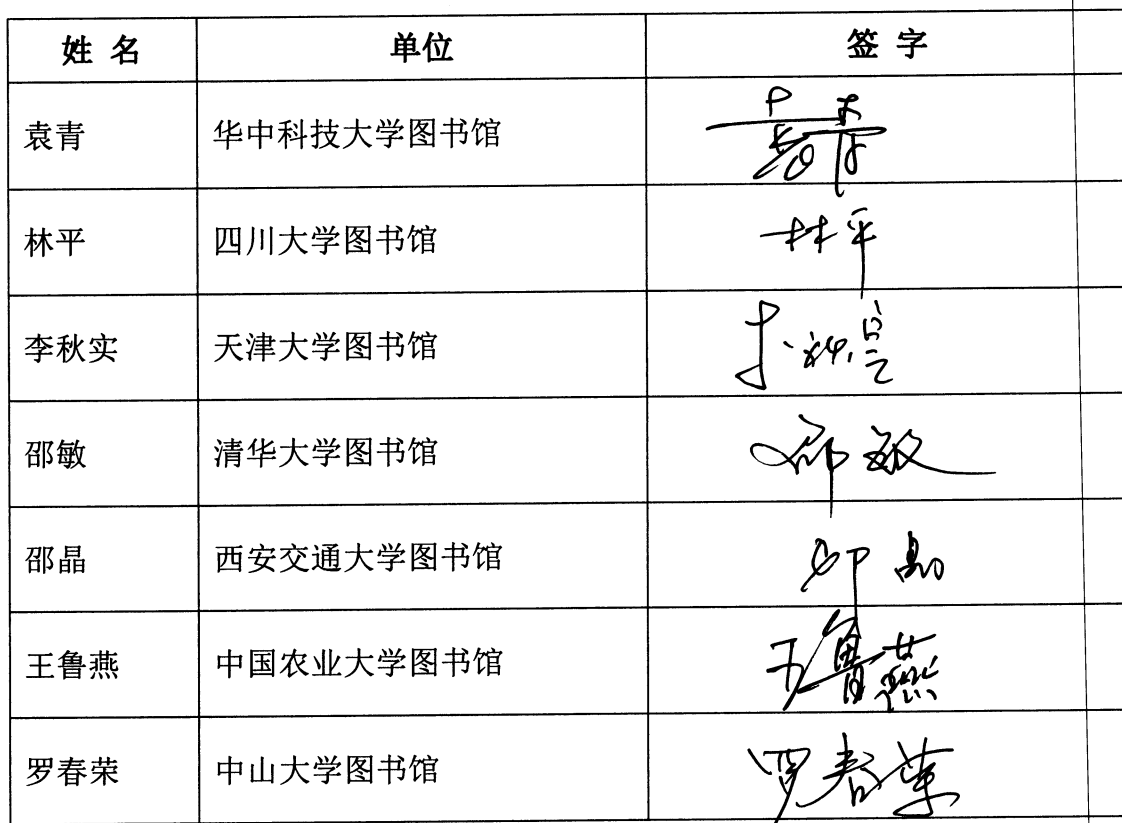 姓 名 单位 签 字
袁青 华中科技大学图书馆 袁青
林平 四川大学图书馆 林平
李秋实 天津大学图书馆 李秋实
邵敏 清华大学图书馆 邵敏
邵晶 西安交通大学图书馆 邵晶
王鲁燕 中国农业大学图书馆 王鲁燕
罗春荣 中山大学图书馆 罗春荣